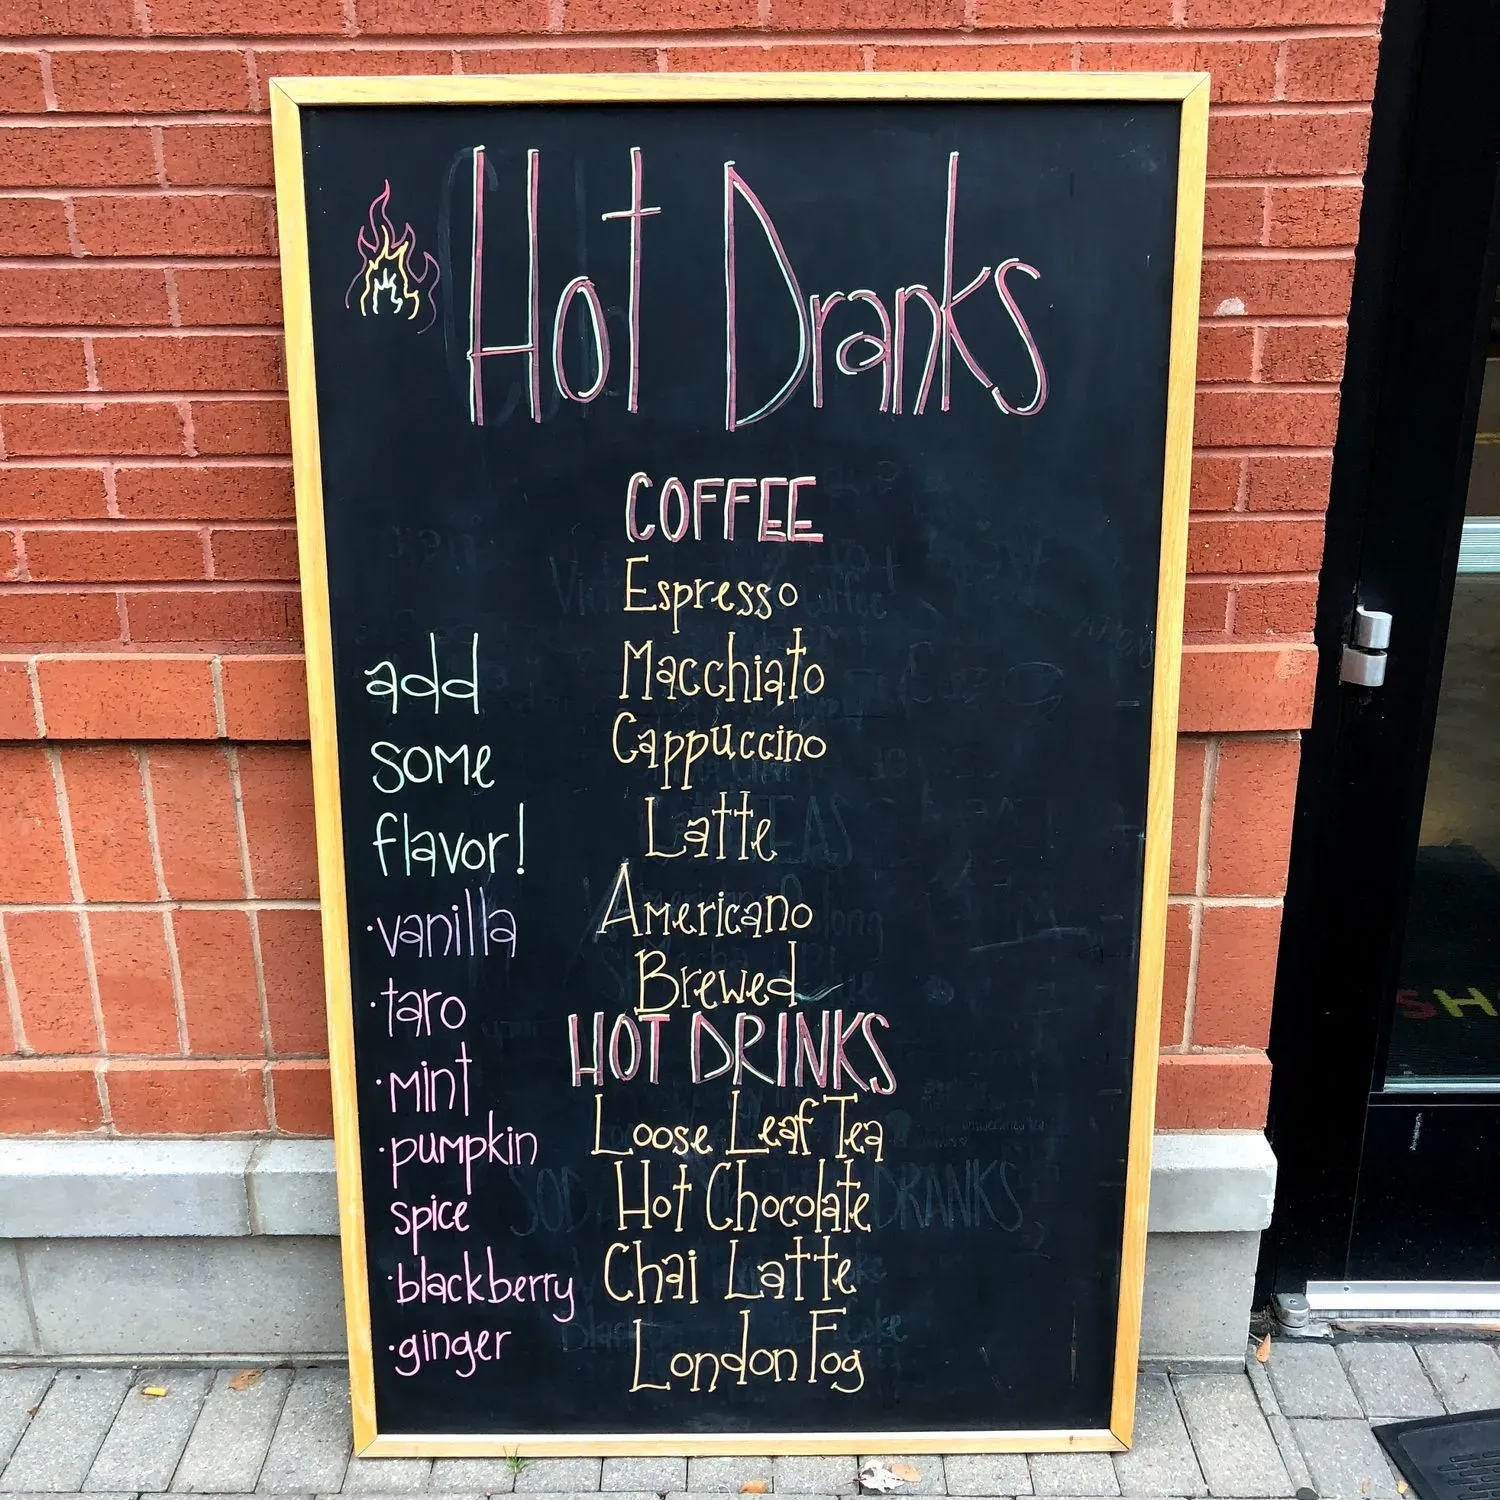 Hot Dranks
COFFEE
Espresso
Macchiato
Cappuccino
Latte
Americano
Brewed
HOT DRINKS
Loose Leaf Tea
Hot Chocolate
Chai Latte
London Fog
add
some
flavor!
·vanilla
·taro
·mint
·pumpkin
spice
·blackberry
·ginger
TEAS
DRANKS
SH